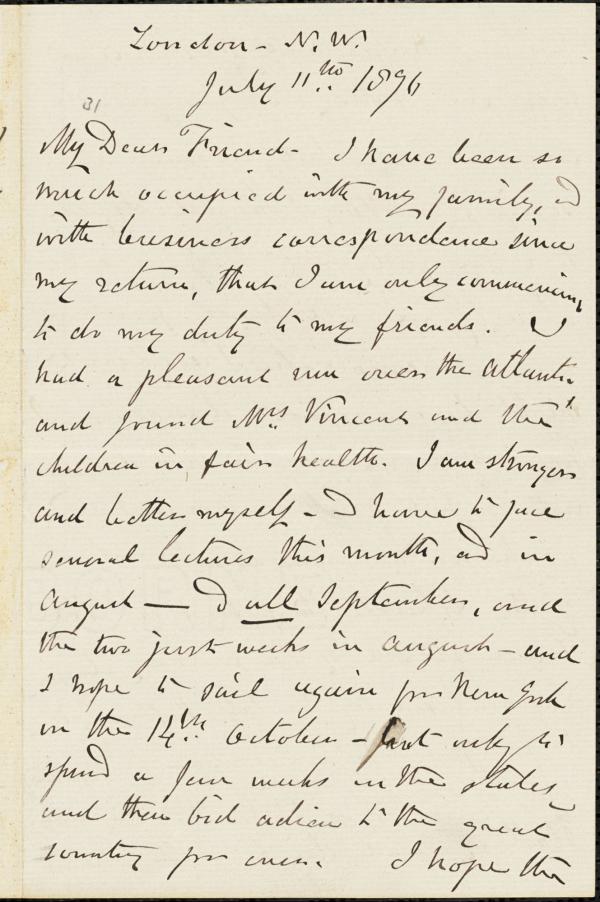 London - N.W.
July 11th 1876
31
My Dear Friend - I have been so
much occupied with my family, &
with business correspondence since
my return, that I am only commencing
to do my duty to my friends. I
had a pleasant run over the Atlantic
and found Mrs. Vincent and the
children in fair health. I am stronger
and better myself - I have to face
several lectures this month, and in
August — & all September, and
the two first weeks in August - and
I hope to sail again for New York
on the 14th October - but only to
spend a few weeks in the States,
and then bid adieu to the great
country for ever. I hope the